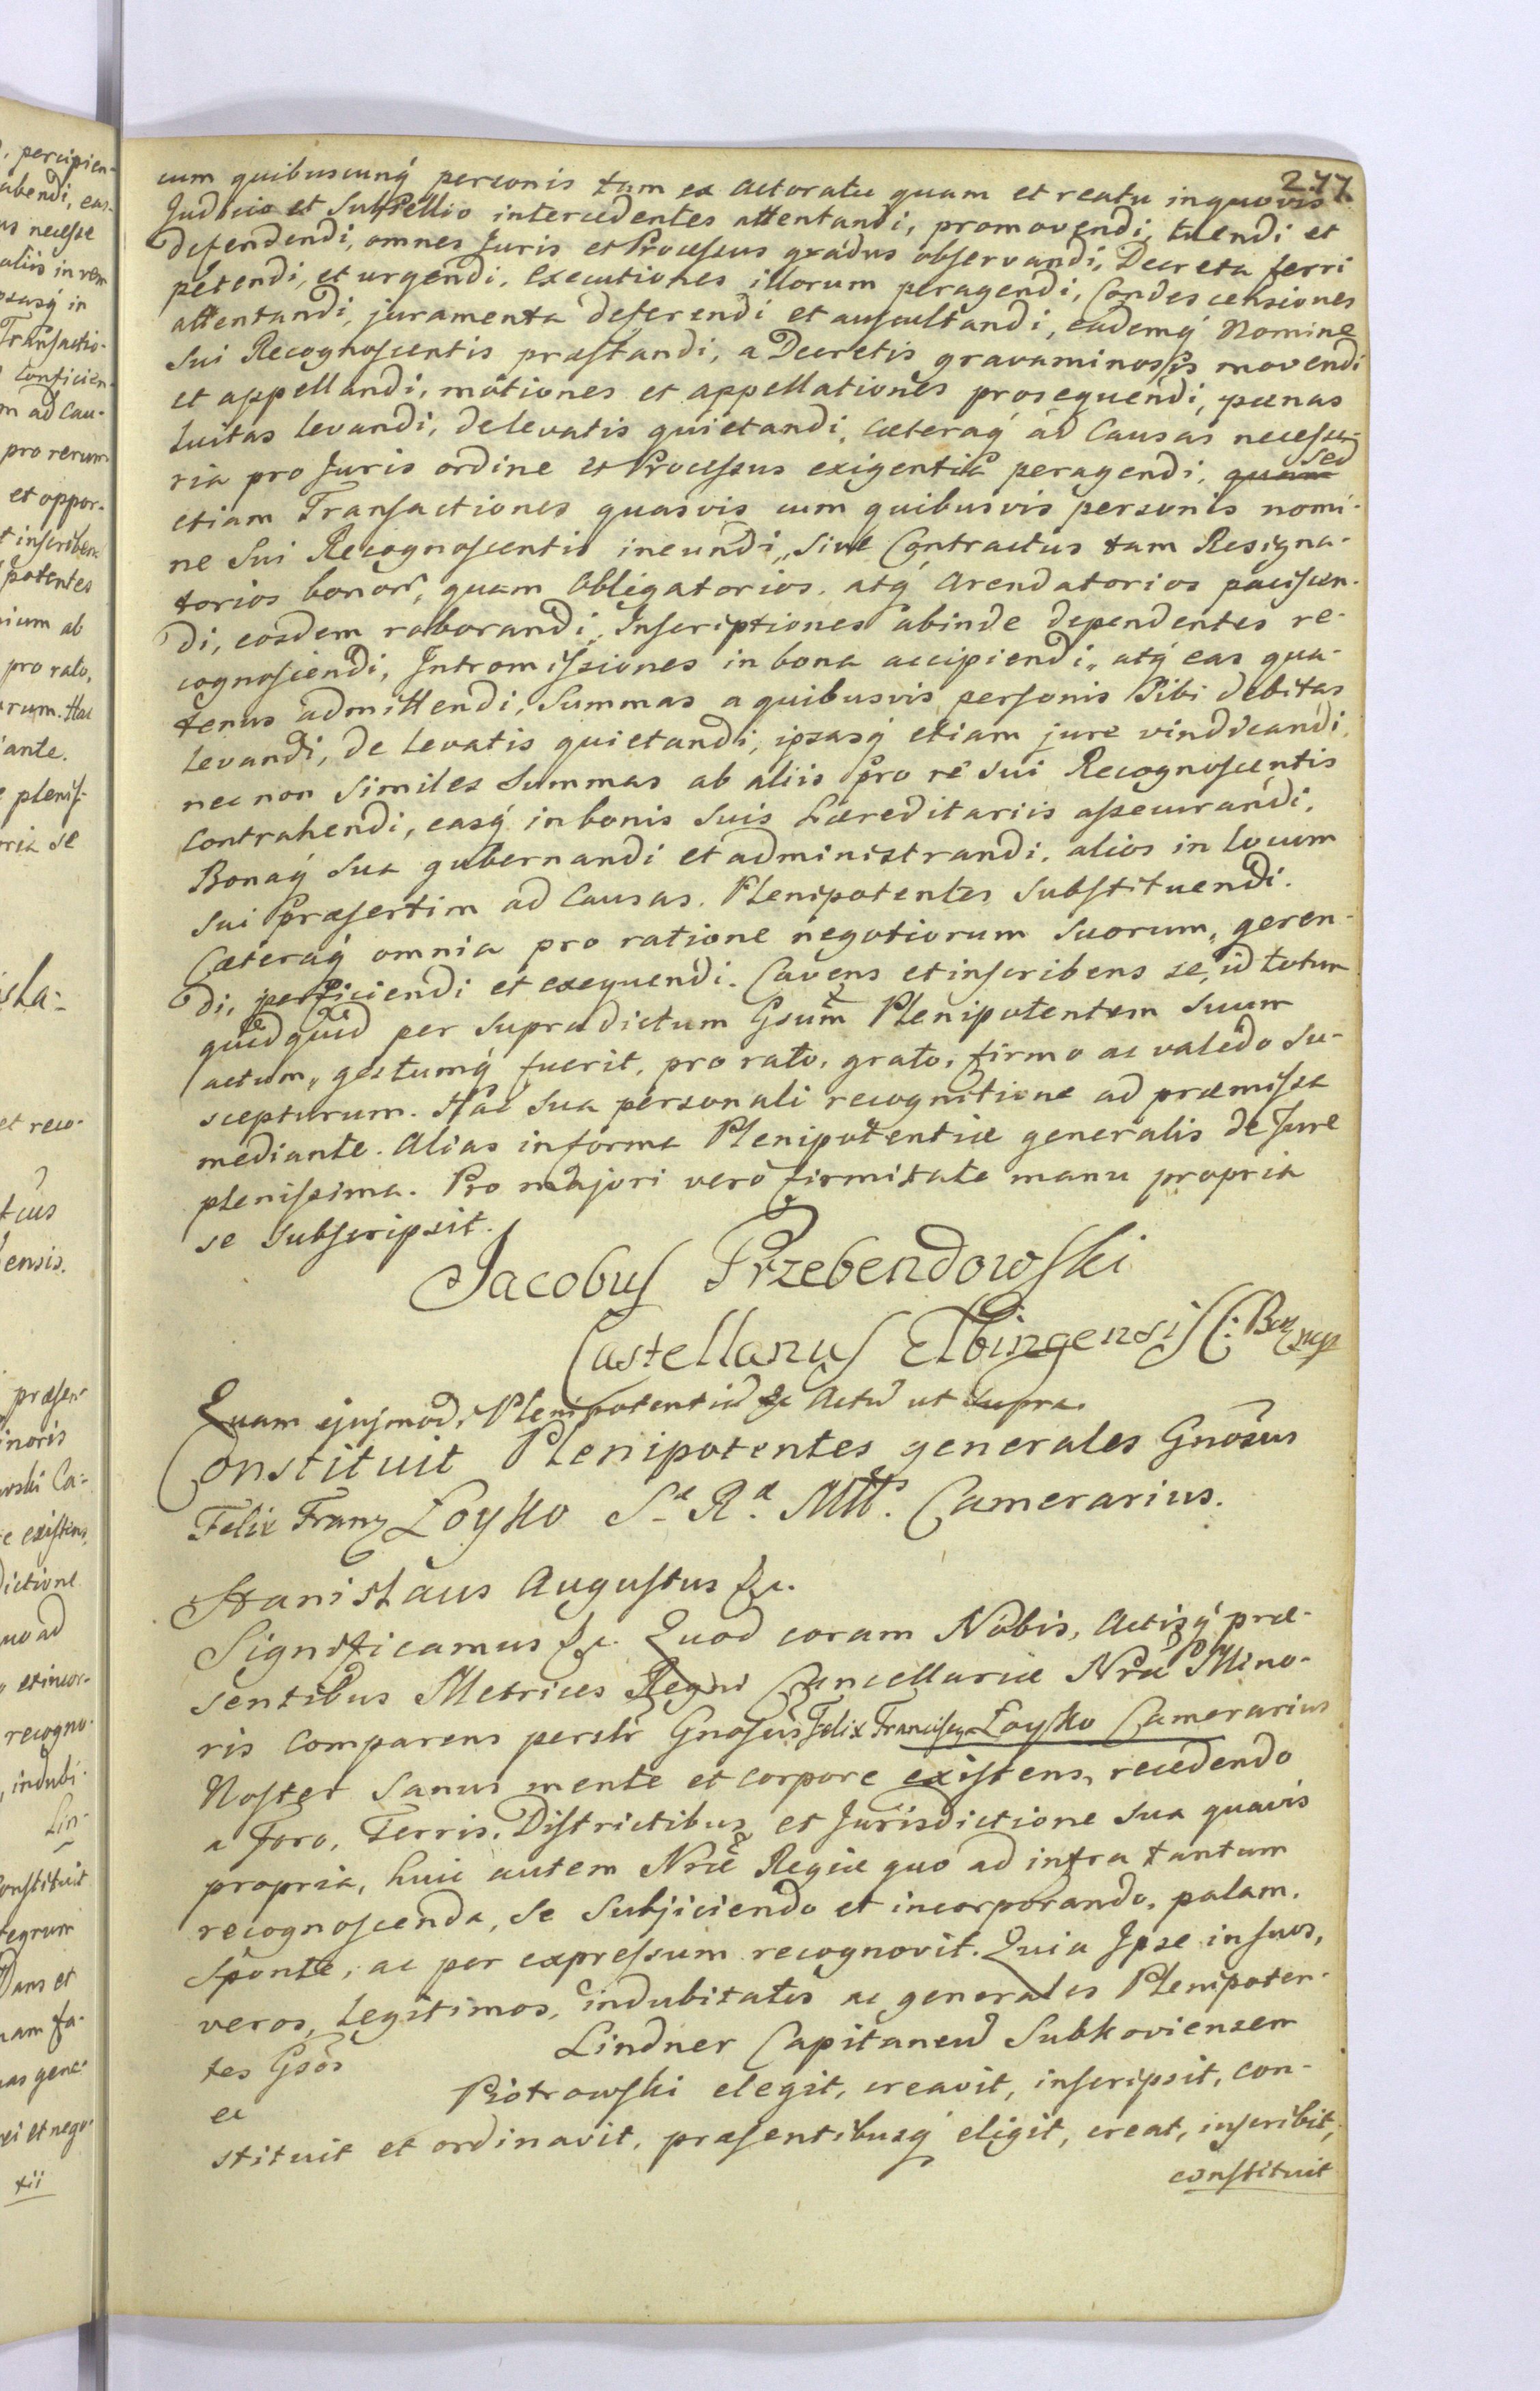 277.
cum quibuscunq́ personis tam ex Actoratu quam et reatu inquovis
Judicio et Subsellio intercedentes attentandi, promovendi, tuendi et
defendendi, omnes Juris et Processus gradus observandi, Decreta ferri
petendi, et urgendi, Executiones illorum peragendi, Condescensiones
attentandi, juramenta deferendi et auscultandi, eademq́ Nomine
Sui Recognoscentis præstandi, a Decretis gravaminosis movendi
et appellandi, motiones et appellationes prosequendi, pænas
luitas levandi, de levatis quietandi, cæteraq́ ad Causas necessa-
ria pro Juris ordine et Processus exigentia peragendi, sed
etiam Transactiones quasvis cum quibusvis personis nomi-
ne Sui Recognoscentis ineundi, sive Contractus tam Resigna-
torios bonor, quam Obligatorios, atq́ Arendatorios paciscen-
di, eosdem roborandi, Inscriptiones abinde dependentes re-
cognoscendi, Intromissiones in bona accipiendi, atq́ eas qua-
tenus admittendi, Summas a quibusvis personis Sibi debitas
levandi, de levatis quietandi, ipsasq́ etiam jure vindicandi,
nec non similes Summas ab aliis pro re sui Recognoscentis
contrahendi, easq́ in bonis Suis hæreditariis assecurandi,
Bonaq́ sua gubernandi et administrandi, alios in locum
sui præsertim ad Causas. Plenipotentes substituendi.
Cæteraq́ omnia pro ratione negotiorum suorum, geren-
di, perficiendi et exequendi. Cavens et inscribens se, id totum
quidquid per supradictum Gsum Plenipotentem suum
actum, gestumq́ fuerit, pro rato, grato, firmo ac valido su-
scepturum. Hac sua personali recognitione ad præmissa
mediante. Alias in forma Plenipotentiæ generalis de Jure
plenissima. Pro majori vero firmitate manu propria
se subscripsit.
Jacobus Przebendowski
Castellanus Elbingensis
Quam ejusmodi Plenipotentia &c Actu ut supra.
Constituit Plenipotentes generales Gnosus
Felix Franz Łoyko S. R. Mtt. Camerarius.
Stanislaus Augustus &c.
Significamus &c. Quod coram Nobis, Actisq́ præ-
sentibus Metrices Regni Cancellariæ Nræ Mino-
ris comparens perslr Gnosus Felix Francisc Łoysko Camerarius
Noster sanus mente et corpore existens, recedendo
a foro, Terris, Districtibus, et Jurisdictione sua quavis
propria, huic autem Nræ Regiæ quo ad infra tantum
recognoscenda, se subjiciendo et incorporando, palam,
sponte, ac per expressum recognovit. Quia Ipse in suos,
veros, legitimos, indubitatos ac generales Plenipoten-
tes Gsos Lindner Capitaneu Subkoviensem
et Piotrowski elegit, creavit, inscripsit, con-
stituit et ordinavit, præsentibusq́ eligit, creat, inscribit,
constituit